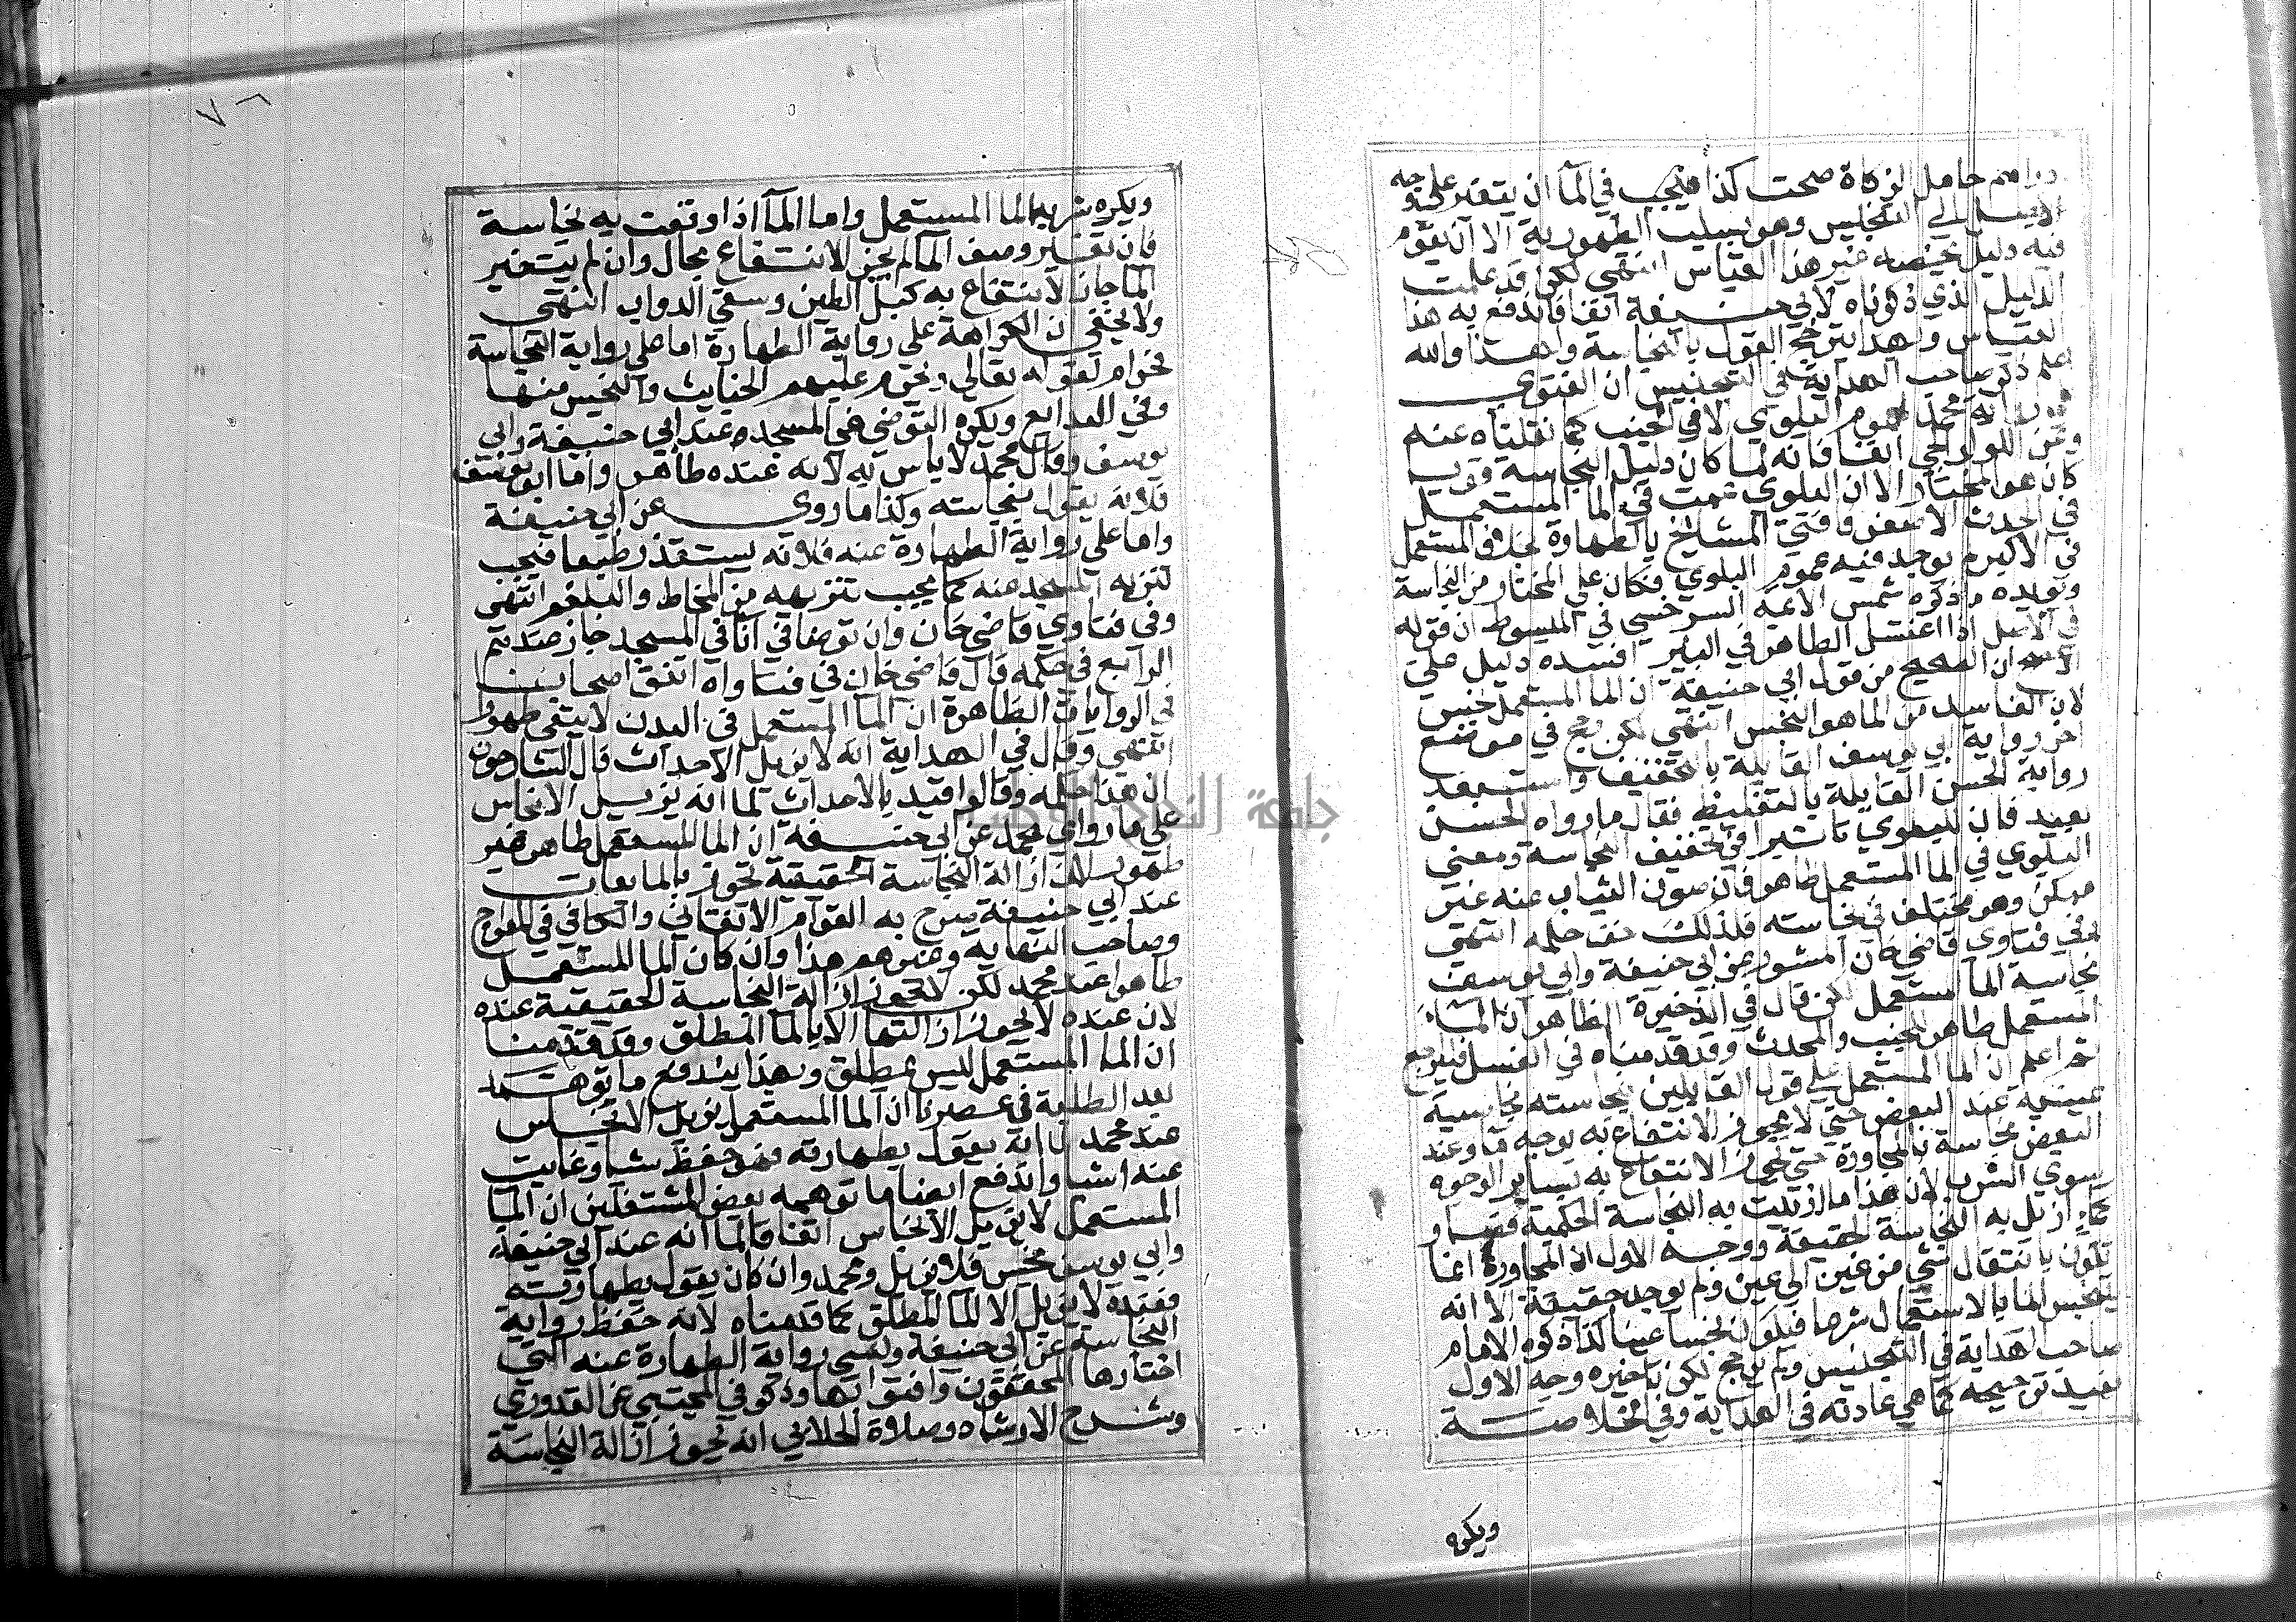 دراهم حامل الزكاة صحت كذا فيجب في المآ ان يتغير على وجه
الاسل الي التنجيس وهو بسلب الطهورية الا ان يقوم
فيه دليل يخصه غير هذا القياس انتهي لكن قد علمت
الدليل الذي ذكرناه لابي حنيفة انفا فاندفع به هذا
القياس وبهذا يترجح القول بالنجاسة ولهذا والله
اعلم ذكر صاحب الهداية في التجنيس ان الفتوي
رواية محمد لعموم البلوي لا في الجنب كما نقلناه عنه
وعن الولوالجي انفا فانه لما كان دليل النجاسة قويـ
كان هو المختار الا ان البلوي عمت في الما المستعمل
في الحدث الاصغر وفتي المشايخ بالطهارة بخلاف المستعمل
في الاكبر لم يوجد فيه عموم البلوي فكان علي المختار من النجاسة
ويويده ما ذكره شمس الايمة السرخسي في المبسوط ان قوله
في الاصل اذا اغتسل الطاهر في البير افسده دليل علي
ان الصحيح من قول ابي حنيفة ان الما المستعمل نجس
لان الفاسد من الما هو النجس انتهي لكن رجح في موضع
اخر رواية ابي يوسف القايلة بالتخفيف واستبعد
رواية الحسن القايلة بالتغليظ فقال ما رواه الحسن
بعيد فان للبلوي تاثيرا في تخفيف النجاسة ومعني
البلوي في الما المستعمل ظاهر فان صون الثياب عنه غير
ممكن وهو مختلف في نجاسته فلذلك خف حكمه انتهي
وفي فتاوي قاضي خان المشهور عن ابي حنيفة وابي يوسف
نجاسة المآ المستعمل لكن قال في الذخيرة الظاهر ان الما
المستعمل طاهر للجنب والمحدث وقد قدمناه في الغسل فليراجع
ثم اعلم ان الما المستعمل علي قول القايلين بنجاسته نجاسته
عينية عند البعض حتي لا يجوز الانتفاع به بوجه ما وعند
البعض نجاسة بالمجاورة حتي يجوز الانتفاع به بساير الوجوه
سوي الشرب لان هذا ما ازيلت به النجاسة الحكمية فصار
كماءٍ ازيل به النجاسة الحقيقة ووجه الاول ان المجاورة انما
تكون بانتقال شي من عين الي عين ولم يوجد حقيقة الا انه
يتنجس الما بالاستعمال شرعا فيكون نجسا عينا كذا ذكره الامام
صاحب الهداية في التجنيس ولم يرجح لكن تاخيره وجه الاول
يفيد ترجيحه كما هي عادته في الهداية وفي الخلاصة
ويكره
ويكره شرب الما المستعمل واما المآ اذا وقعت فيه نجاسة
فان تغير وصف المآ لم يجز الانتفاع بحال وان لم يتغير
الما جاز الانتفاع به كبل الطين وسقي الدواب انتهي
ولا يخفي ان الكراهة علي رواية الطهارة اما علي رواية النجاسة
فحرام لقوله تعالي ويحرم عليهم الخبايث والنجس منها
وفي البدايع ويكره التوضي في المسجد عند ابي حنيفة وابي
يوسف وقال محمد لا باس به لانه عنده طاهر واما ابو يوسف
فلانه يقول بنجاسته وكذا ما روي عن ابي حنيفة
واما علي رواية الطهارة عنه فلانه يستقذر طبعا فيجب
تنزيه المسجد عنه كما يجب تنزيهه من المخاط والبلغم انتهي
وفي فتاوي قاضي خان وان توضا في انآ في المسجد جاز عندهم
الرابع في حكمه قال قاضي خان في فتاواه اتفق اصحابنا
في الروايات الظاهرة ان المآ المستعمل في البدن لا يبقي طهورا
انتهي وقال في الهداية انه لا يزيل الاحداث قال الشارحون
ان هذا حكمه وقالوا قيد بالاحداث لما انه يزيل الانجاس
علي ما رواي محمد عن ابي حنيفة ان الما المستعمل طاهر غير
طهور لان ازالة النجاسة الحقيقية تجوز بالمايعات
عند ابي حنيفة صرح به القوام الاتقاني والكاكي في المعراج
وصاحب النهاية وغيرهم هذا وان كان الما المستعمل
طاهرا عند محمد لكن لا تجوز ازالة النجاسة الحقيقية عنده
لان عنده لا يجوز ازالتها الا بالما المطلق وقد قدمنا
ان الما المستعمل ليس بمطلق وبهذا يندفع ما توهمه
بعد الطلبة في عصرنا ان الما المستعمل يزيل الانجاس
عند محمد لما انه يقول بطهارته فهو حفظ شيا وغابت
عنه اشيا واندفع ايضا ما توهمه بعض المشتغلين ان المآ
المستعمل لا يزيل الانجاس اتفاقا لما انه عند ابي حنيفة
وابي يوسف نجس فلا يزيل ومحمد وان كان يقول بطهارته
فعنده لا يزيل الا الما المطلق كما قدمناه لانه حفظ رواية
النجاسة عن ابي حنيفة ونسي رواية الطهارة عنه التي
اختارها المحققون وافتوا بها وذكر في المجتبي عن القدوري
وشرح الارشاد وصلاة الجلابي انه تجوز ازالة النجاسة
جامعة النجاح الوطنية